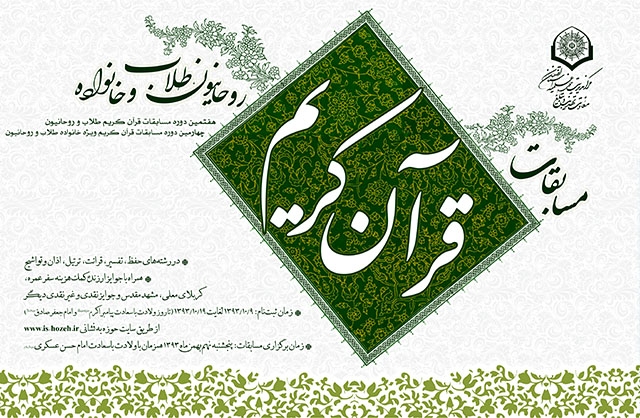 مسابقات
قرآن کریم
روحانیون طلاب و خانواده
هفتمین دوره مسابقات قرآن کریم طلاب و روحانیون
چهارمین دوره مسابقات قرآن کریم ویژه خانواده طلاب و روحانیون
در رشته‌های حفظ، تفسیر، قرائت، ترتیل، اذان و تواشیح
همراه با جوایز ارزنده کمک هزینه سفر عمره،
کربلای معلی، مشهد مقدس و جوایز نقدی و غیر نقدی دیگر
زمان ثبت‌نام: ۱۳۹۳/۱۰/۹ لغایت ۱۳۹۳/۱۰/۱۹ (تا روز ولادت با سعادت پیامبر اکرم و امام جعفر صادق)
از طریق سایت حوزه به نشانی www.is.hozeh.ir
زمان برگزاری مسابقات: پنجشنبه نهم بهمن ماه ۱۳۹۳ همزمان با ولادت با سعادت امام حسن عسکری